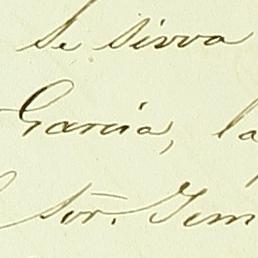 se sirva
Garcia, la
Sor. Tem